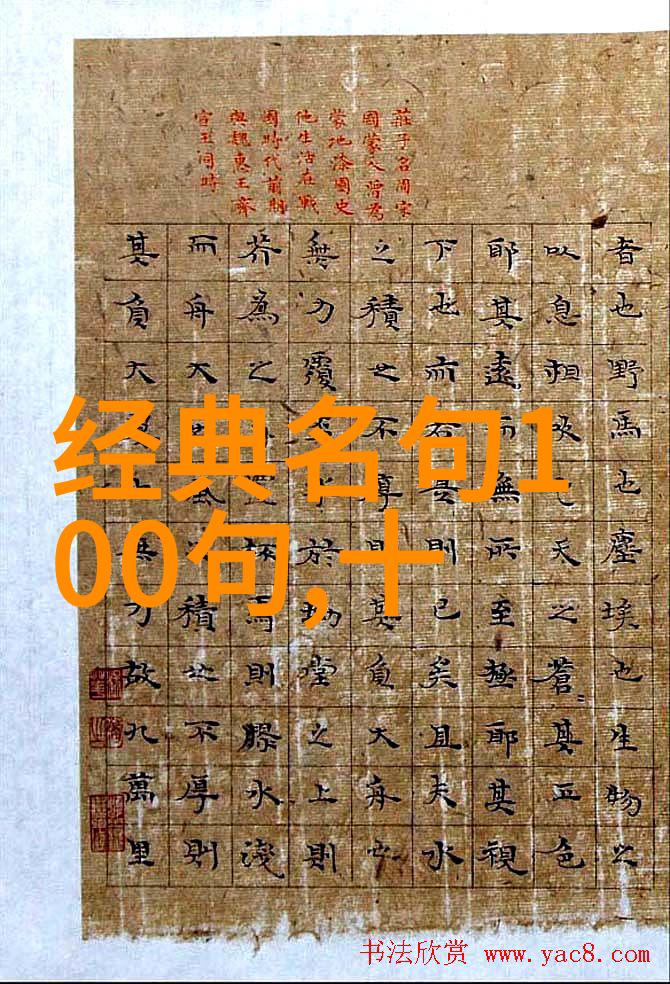 莊子名周宋
國蒙人曾為
蒙地漆園史
他生活在戰
國時代前期
與魏惠王齊
宣王同時
者也野馬也塵埃也生物之
以息相吹也天之蒼其正色
耶其遠而無所至極耶其視
下也而若是則已矣且夫水
之積也不厚則其負大舟也
無力覆杯水於坳堂之上則
芥為之舟置杯焉則膠水淺
而舟大也風之積也不厚則
其負大翼也無力故九萬里
经典名句1
00句,十
书法欣赏 www.yac8.com